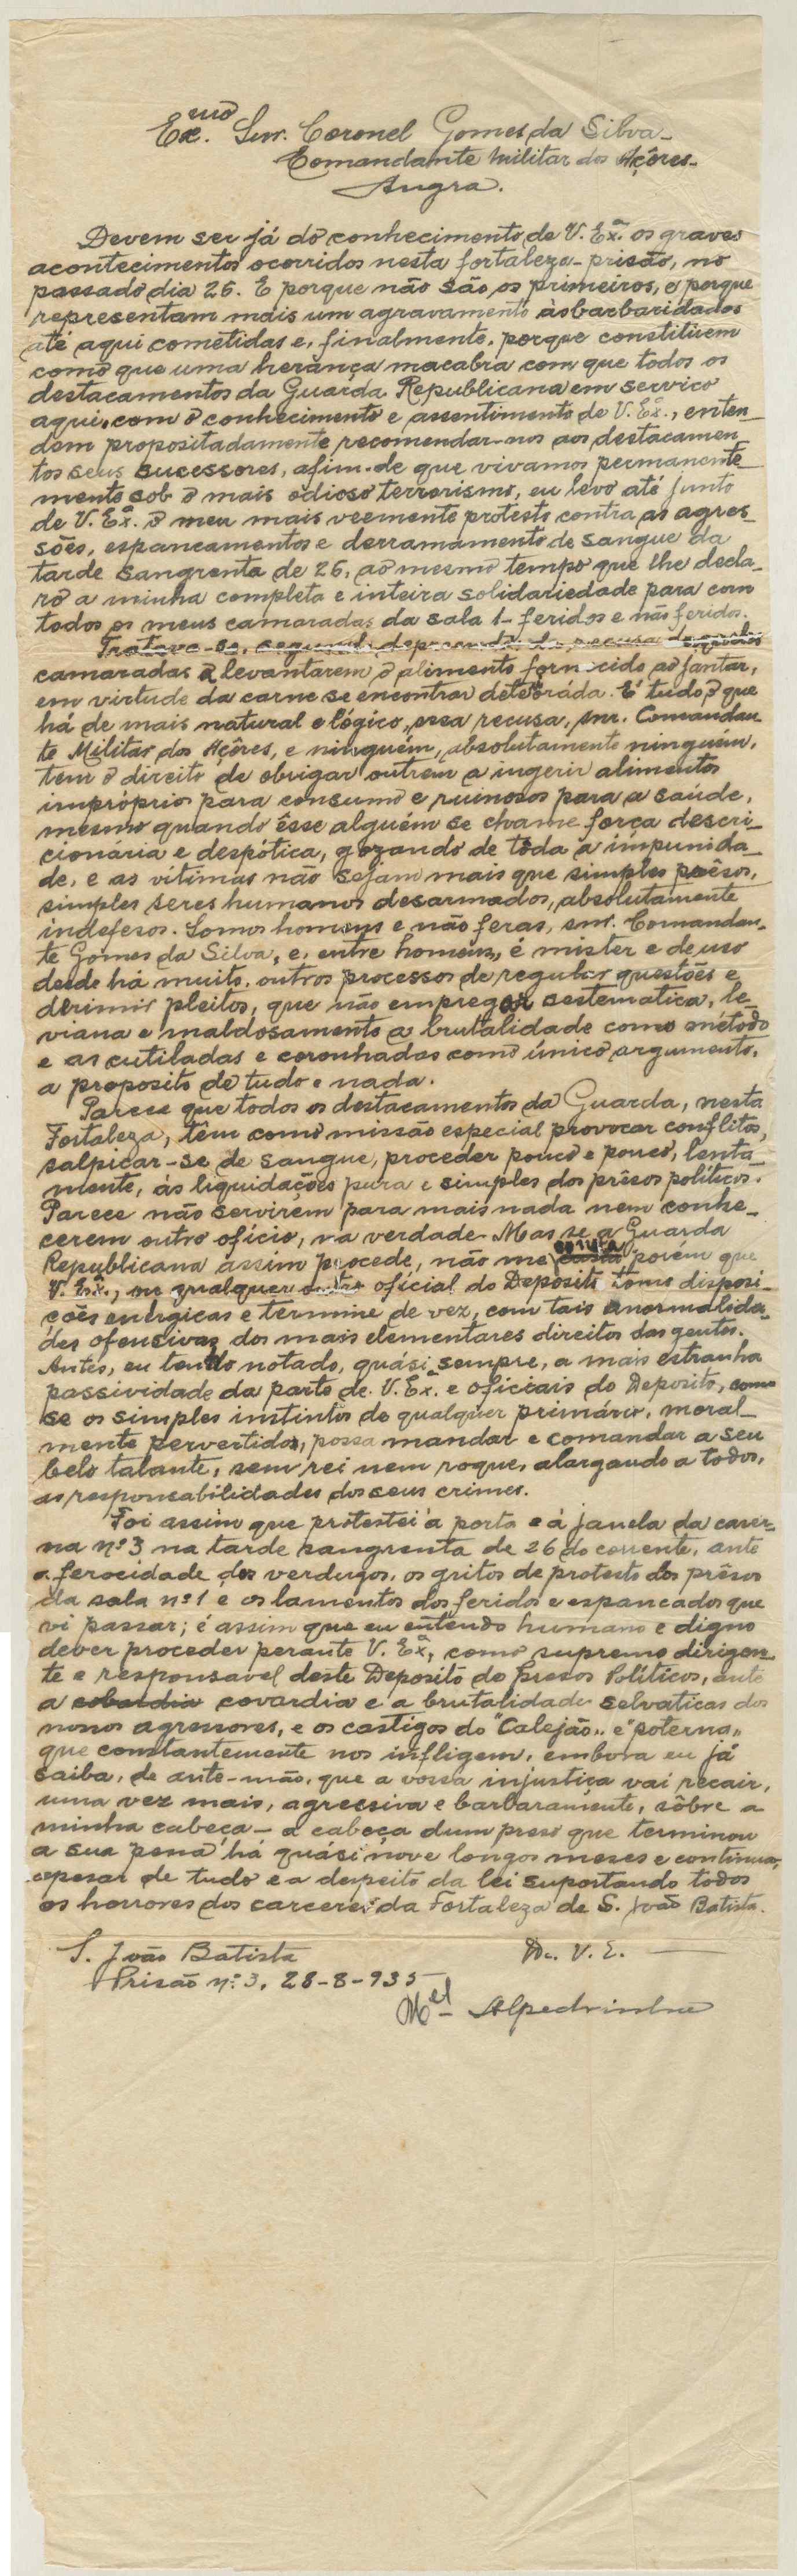 Exmo. Snr. Coronel Gomes da Silva_
Comandante Militar dos Açôres_
Angra.
Devem ser já do conhecimento de V. Exª. os graves
acontecimentos ocorridos nesta fortaleza-prisão, no
passado dia 26. E porque não são os primeiros, e porque
representam mais um agravamento ás barbaridades
até aqui cometidas e, finalmente, porque constituem
como que uma herança macabra com que todos os
destacamentos da Guarda Republicana em serviço
aqui, com o conhecimento e assentimento de V. Exª., enten_
dem propositadamente recomendar-nos aos destacamen_
tos seus sucessores, afim-de que vivamos permanente_
mente sob o mais odioso terrorismo, eu levo até junto
de V. Exª. o meu mais veemente protesto contra as agres_
sões, espancamentos e derramamento de sangue da
tarde sangrenta de 26, ao mesmo tempo que lhe decla_
ro a minha completa e inteira solidariedade para com
todos os meus camaradas da sala 1- feridos e não feridos.
Tratava-se, segundo depreendi da recusa
camaradas a levantarem o alimento fornecido ao jantar,
em virtude da carne se encontrar deteoráda. E' tudo o que
há de mais natural e lógico, essa recusa, snr. Comandan_
te Militar dos Açôres, e ninguém, absolutamente ninguém,
tem o direito de obrigar outrem a ingerir alimentos
impróprios para consumo e ruinosos para a saúde,
mesmo quando êsse alguém se chame força descri_
cionária e despótica, gozando de tôda a impunida_
de, e as vitimas não sejam mais que simples prêsos,
simples seres humanos desarmados, absolutamente
indefesos. Somos homens e não feras, snr. Comandan_
te Gomes da Silva, e, entre homens, é mister e de uso
desde há muito, outros processos de regular questões e
derimir pleitos, que não empregar sestematica, le_
viana e maldosamente a brutalidade como método
e as cutiladas e coronhadas como único argumento,
a proposito de tudo e nada.
Parece que todos os destacamentos da Guarda, nesta
Fortaleza, têm como missão especial provocar conflitos,
salpicar-se de sangue, proceder pouco e pouco, lenta_
mente, ás liquidações pura e simples dos prêsos políticos.
Parece não servirem para mais nada nem conhe_
cerem outro ofício, na verdade. Mas se a Guarda
Republicana assim procede, não me consta porém que
V. Exª., ou qualquer outro oficial do Deposito tome disposi_
ções enérgicas e termine de vez, com tais anormalida_
des ofensivas dos mais elementares direitos das gentes.
Antes, eu tenho notado, quási sempre, a mais estranha
passividade da parte de V. Exª. e oficiais do Deposito, como
se os simples instintos de qualquer primário, moral_
mente pervertidos, possa mandar e comandar a seu
belo talante, sem rei nem roque, alargando a todos,
as responsabilidades dos seus crimes.
Foi assim que protestei á porta e á janela da caser_
na nº 3 na tarde sangrenta de 26 do corrente, ante
a ferocidade dos verdugos, os gritos de protesto dos prêsos
da sala nº 1 e os lamentos dos feridos e espancados que
vi passar; é assim que eu entendo humano e digno
dever proceder perante V. Exª, como supremo dirigen_
te e responsavel deste Deposito de Presos Políticos, ante
a cobardia covardia e a brutalidade selvaticas dos
nossos agressores, e os castigos do "Calejão" e "poterna"
que constantemente nos infligem, embora eu já
saiba, de ante-mão, que a vossa injustiça vai recair,
uma vez mais, agressiva e barbaramente, sôbre a
minha cabeça - a cabeça dum preso que terminou
a sua pena há quási nove longos meses e continua,
apesar de tudo e a despeito da lei suportando todos
os horrores dos carceres da Fortaleza de S. João Batista.
S. João Batista
De V. E.
Prisão nº 3, 28-8-935
Mel Alpedrinha